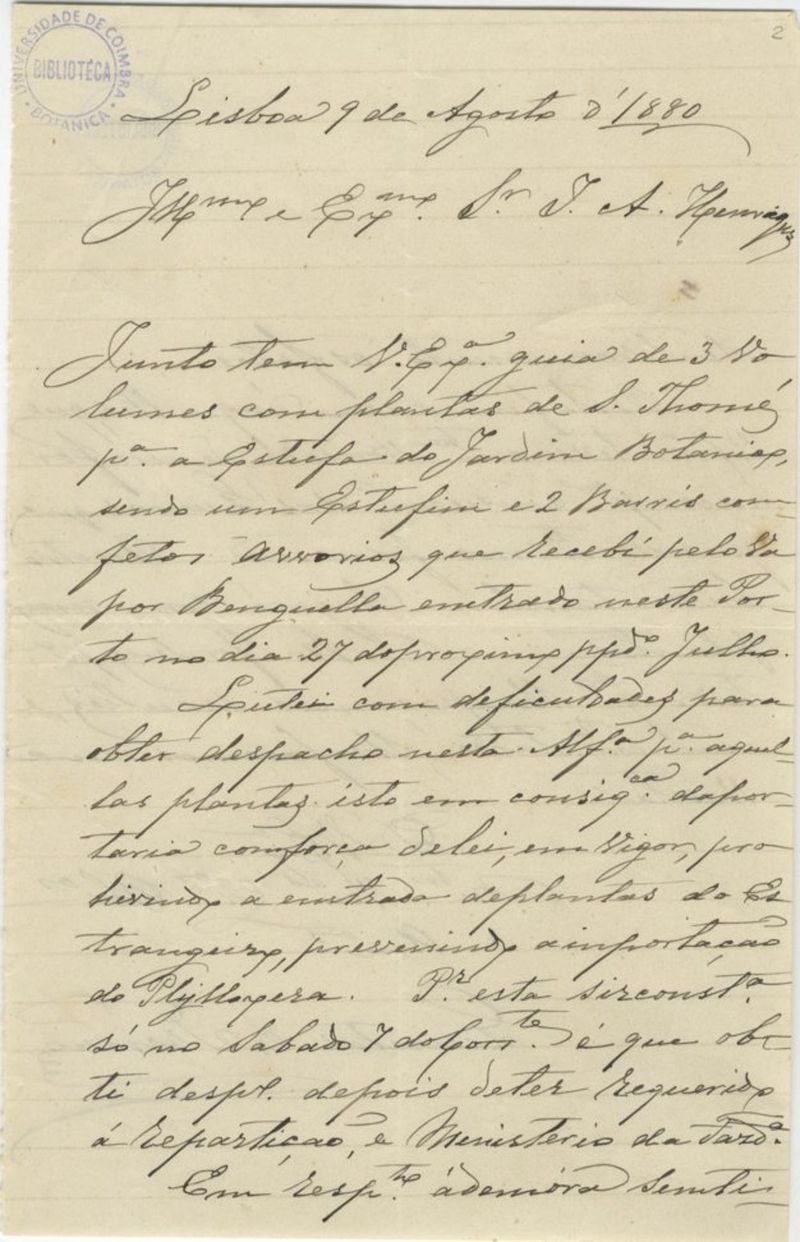 2
UNIVERSIDADE DE COIMBRA
BIBLIOTECA
BOTANICA
Lisboa 9 de Agosto d'1880
Illmo. e Exmo. Sr J. A. Henriques
Junto tem V. Exa. guia de 3 vo
lumes com plantas de S. Thomé
pa. a Estufa do Jardim Botanico,
sendo um Estufim e 2 Barris com
fetos arvorios que recebí pelo va
por Benguella emtrado neste Por-
to no dia 27 do proximo ppdo. Julho.
Lutei com deficuldades para
obter despacho nesta Alfa. pa. aquel-
las plantas isto em consigca. da por-
taria com força de lei, em vigor, pro
hivindo a emtrada de plantas do Es
trangeiro, prevenindo a inportação
do Phylloxera. Pr esta sirconsta.
só no Sabado 7 do Corrte. é que obe
ti despo. depois de ter requerido
á repartição, e Menisterio da Fazda.
Em respto. á demóra senti-